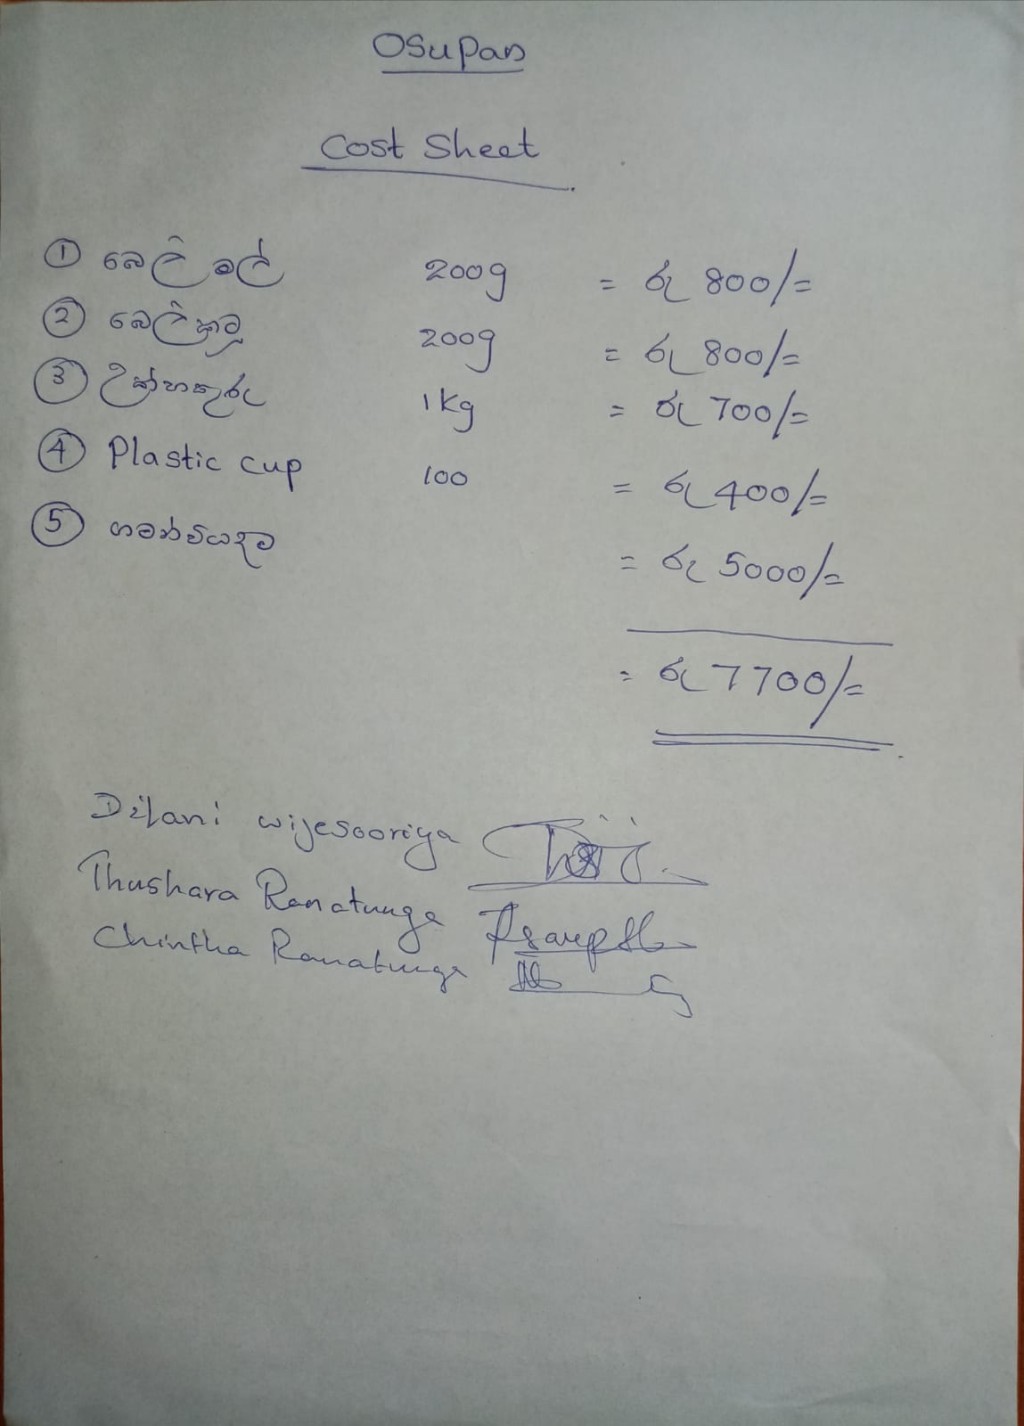 Osupan
Cost Sheet
① බෙලි මල් 200g = රු 800/=
② බෙලිකටු 200g = රු 800/=
③ උක්හකුරු 1kg = රු 700/=
④ Plastic cup 100 = රු 400/=
⑤ ගමන්වියදම = රු 5000/=
= රු 7700/=
Dilani wijesooriya
Thushara Ranatunga
Chintha Ranatunga